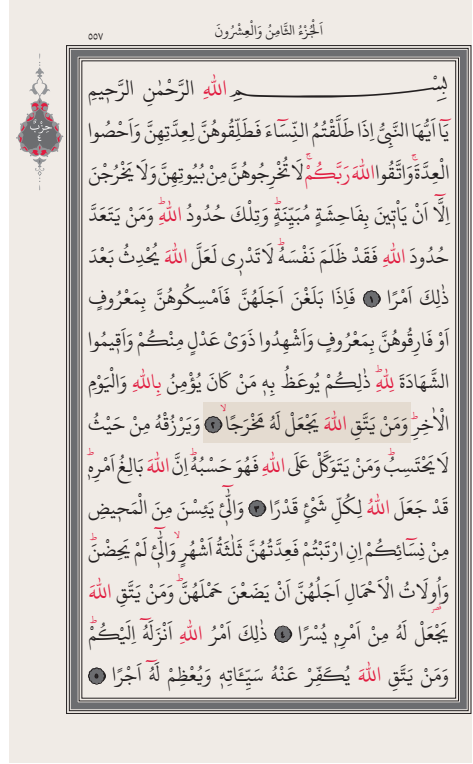 اَلْجُزْءُ الثَّامِنُ وَالْعِشْرُونَ
٥٥٧
حِزْبْ
٤
بِسْـــمِ اللهِ الرَّحْمٰنِ الرَّح۪يمِ
يَٓا اَيُّهَا النَّبِيُّ اِذَا طَلَّقْتُمُ النِّسَٓاءَ فَطَلِّقُوهُنَّ لِعِدَّتِهِنَّ وَاَحْصُوا
الْعِدَّةَۚ وَاتَّقُوا اللهَ رَبَّكُمْۚ لَا تُخْرِجُوهُنَّ مِنْ بُيُوتِهِنَّ وَلَا يَخْرُجْنَ
اِلَّٓا اَنْ يَأْت۪ينَ بِفَاحِشَةٍ مُبَيِّنَةٍۜ وَتِلْكَ حُدُودُ اللهِۜ وَمَنْ يَتَعَدَّ
حُدُودَ اللهِ فَقَدْ ظَلَمَ نَفْسَهُۜ لَا تَدْر۪ي لَعَلَّ اللهَ يُحْدِثُ بَعْدَ
ذٰلِكَ اَمْرًا ﴿١﴾ فَاِذَا بَلَغْنَ اَجَلَهُنَّ فَاَمْسِكُوهُنَّ بِمَعْرُوفٍ
اَوْ فَارِقُوهُنَّ بِمَعْرُوفٍ وَاَشْهِدُوا ذَوَيْ عَدْلٍ مِنْكُمْ وَاَق۪يمُوا
الشَّهَادَةَ لِلّٰهِۜ ذٰلِكُمْ يُوعَظُ بِه۪ مَنْ كَانَ يُؤْمِنُ بِاللهِ وَالْيَوْمِ
الْاٰخِرِۜ وَمَنْ يَتَّقِ اللهَ يَجْعَلْ لَهُ مَخْرَجًاۙ ﴿٢﴾ وَيَرْزُقْهُ مِنْ حَيْثُ
لَا يَحْتَسِبُۜ وَمَنْ يَتَوَكَّلْ عَلَى اللهِ فَهُوَ حَسْبُهُۜ اِنَّ اللهَ بَالِغُ اَمْرِه۪ۜ
قَدْ جَعَلَ اللهُ لِكُلِّ شَيْءٍ قَدْرًا ﴿٣﴾ وَالّٰٓـ۪ٔي يَئِسْنَ مِنَ الْمَح۪يضِ
مِنْ نِسَٓائِكُمْ اِنِ ارْتَبْتُمْ فَعِدَّتُهُنَّ ثَلٰثَةُ اَشْهُرٍۙ وَالّٰٓـ۪ٔي لَمْ يَحِضْنَۜ
وَاُو۬لَاتُ الْاَحْمَالِ اَجَلُهُنَّ اَنْ يَضَعْنَ حَمْلَهُنَّۜ وَمَنْ يَتَّقِ اللهَ
يَجْعَلْ لَهُ مِنْ اَمْرِه۪ يُسْرًا ﴿٤﴾ ذٰلِكَ اَمْرُ اللهِ اَنْزَلَهُٓ اِلَيْكُمْۜ
وَمَنْ يَتَّقِ اللهَ يُكَفِّرْ عَنْهُ سَيِّـَٔاتِه۪ وَيُعْظِمْ لَهُٓ اَجْرًا ﴿٥﴾